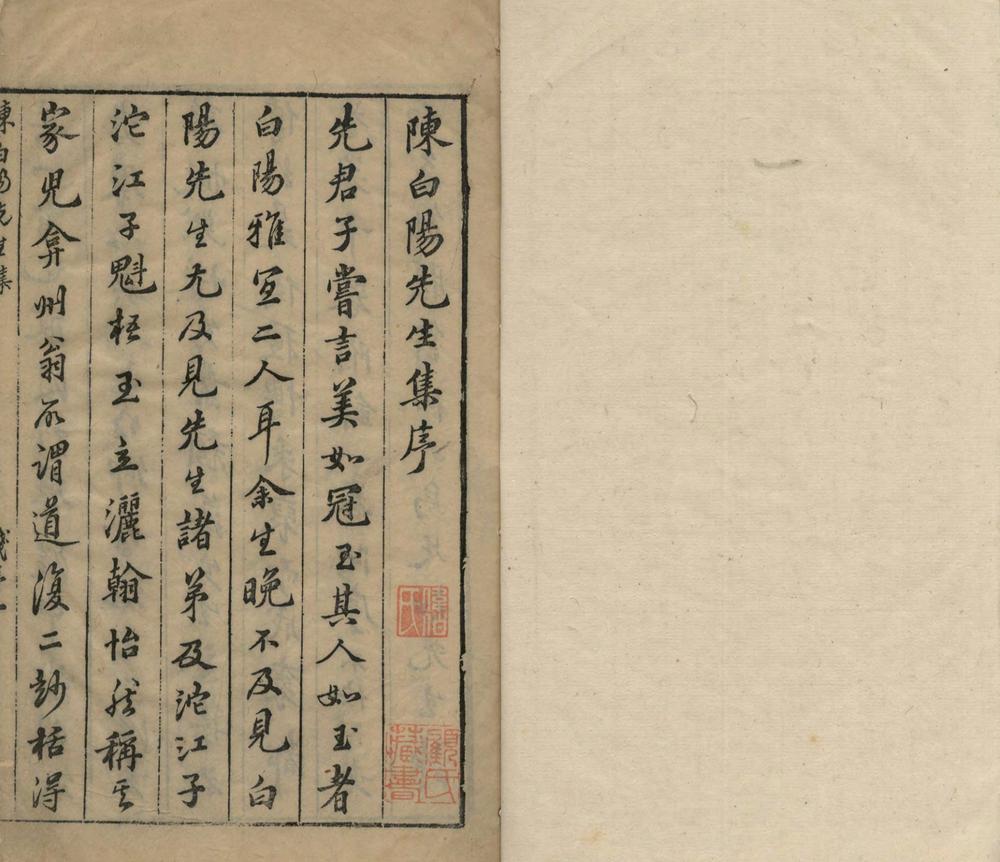 陳白陽先生集序
先君子嘗言美如冠玉其人如玉者
白陽雅宜二人耳余生晚不及見白
陽先生尤及見先生諸弟及沱江子
沱江子魁梧玉立灑翰怡然稱其
家兒弇州翁所謂道復二玅栝得
陳白陽先生集
顧氏藏書